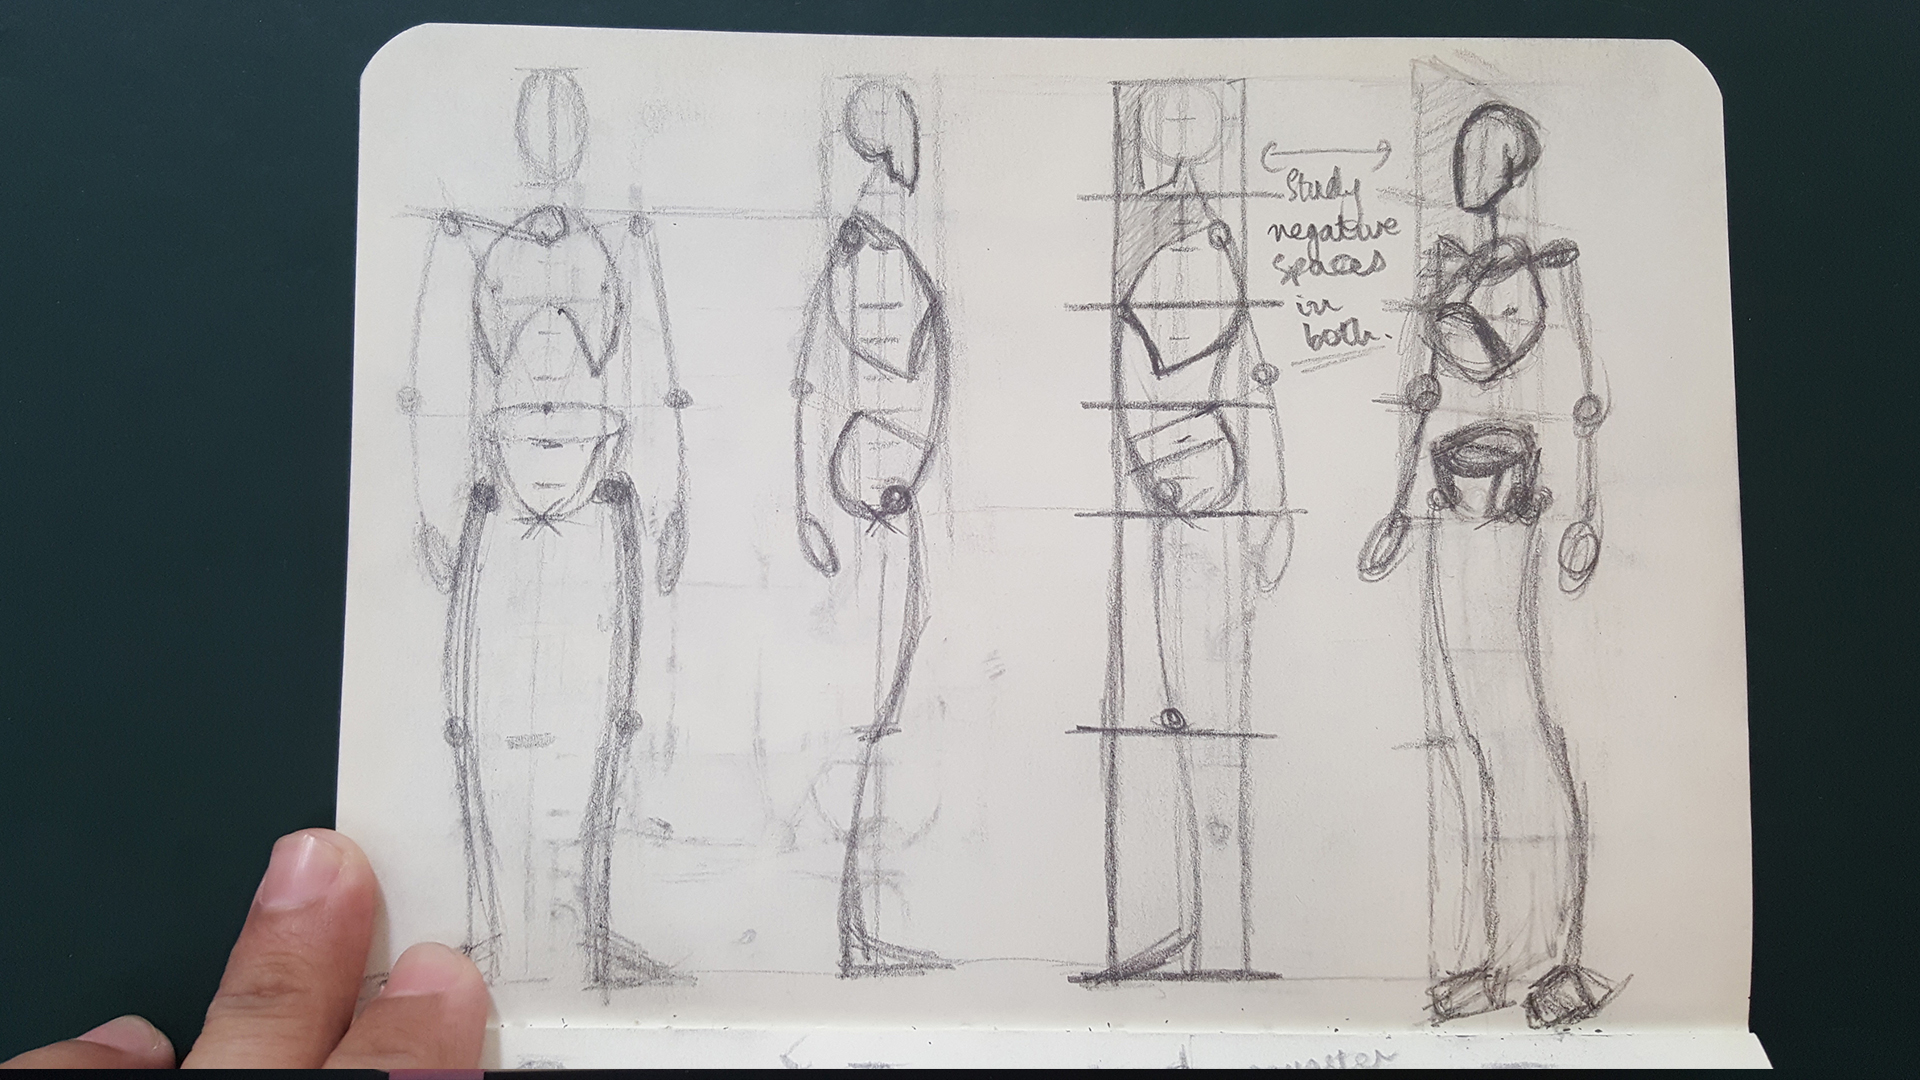 Study
negative
spaces
in
both.